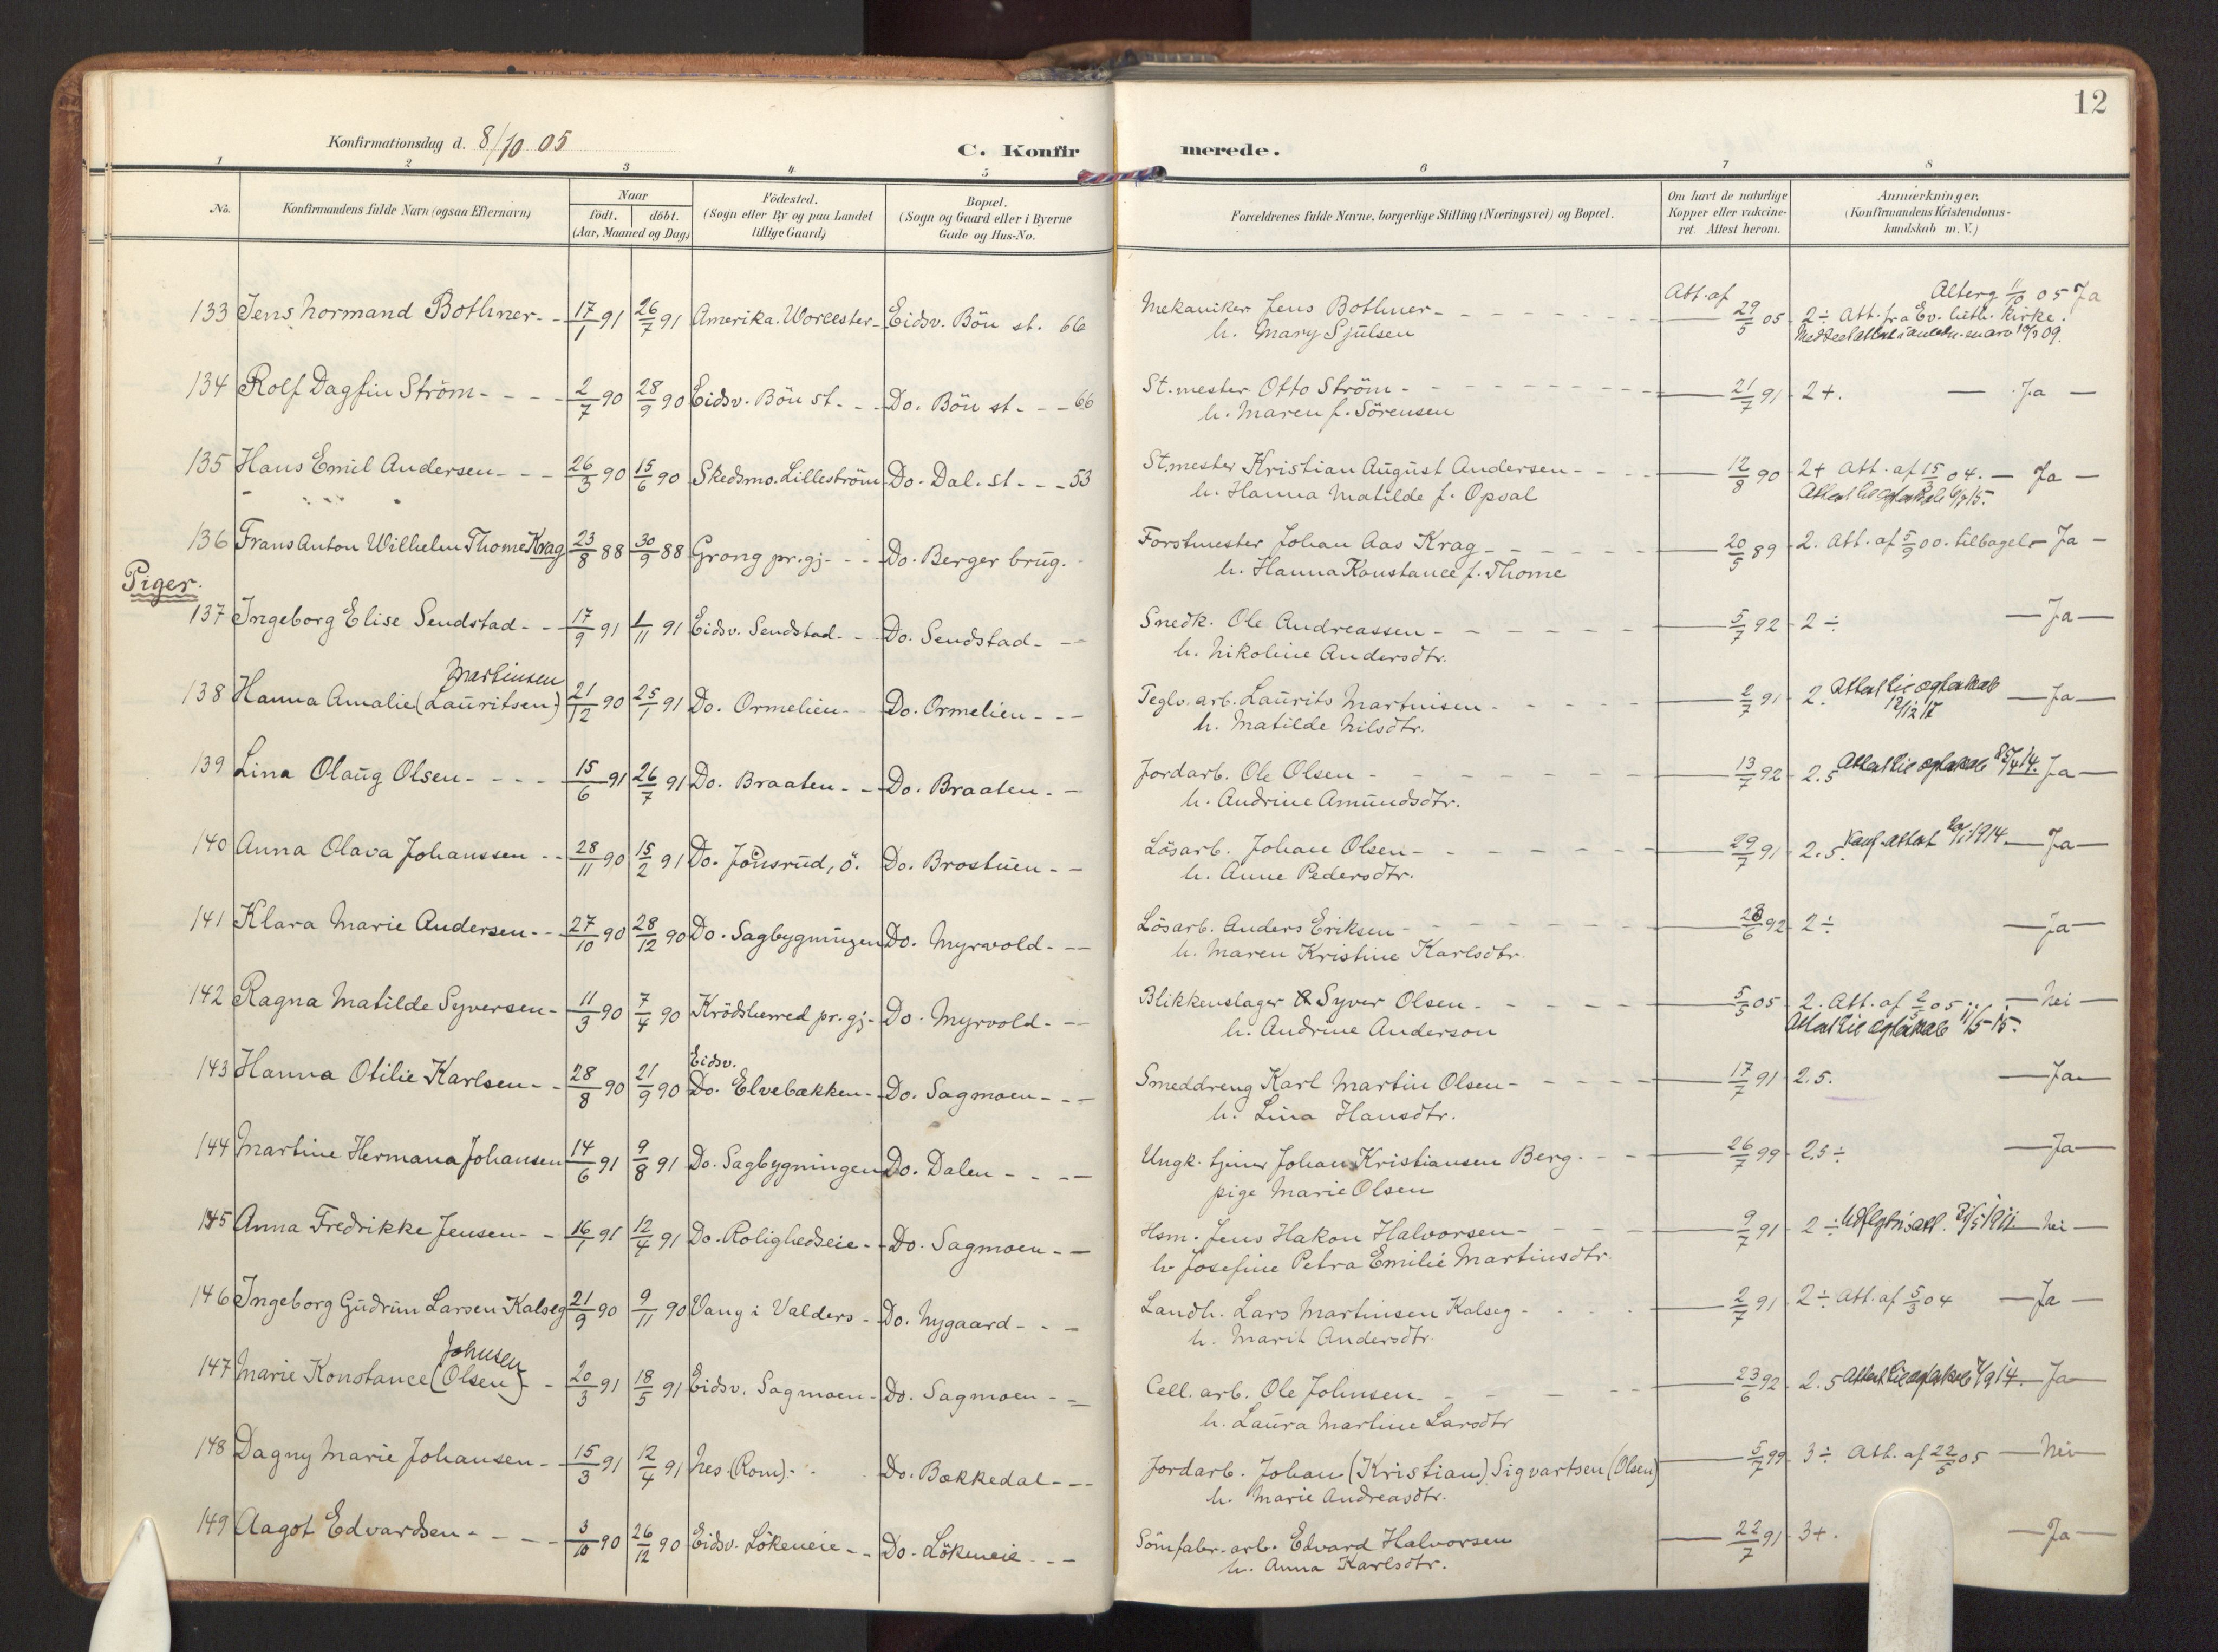 12
Konfirmationsdag d. 8/10 05
C. Konfirmerede.
1 2 3 4 5 6 7 8
No.
Konfirmandens fulde Navn (ogsaa Efternavn)
Naar
födt. döbt.
(Aar, Maaned og Dag)
Födested.
(Sogn eller By og paa Landet
tillige Gaard)
Bopæl.
(Sogn og Gaard eller i Byerne
Gade og Hus-No.
Forældrenes fulde Navne, borgerlige Stilling (Næringsvei) og Bopæl.
Om havt de naturlige
Kopper eller vakcine-
ret. Attest herom.
Anmærkninger,
(Konfirmandens Kristendoms-
kundskab m. V.)
133 Jens Normand Bothner 17/1 91 26/7 91 Amerika. Worcester Eidsv. Bön st. 66 Mekaniker Jens Bothner Att. af 29/5 05 2÷ Att. fra Ev. luth. Kirke. Alterg. 11/10 05 Ja
h. Mary Sjulsen
134 Rolf Dagfin Ström 2/7 90 28/9 90 Eidsv. Bön st. Do. Bön st. 66 St.mester Otto Ström 21/7 91 2+. Ja
h. Maren f. Sörensen
135 Hans Emil Andersen 26/3 90 15/6 90 Skedsmo. Lilleström Do. Dal. st. 53 St.mester Kristian August Andersen 12/8 90 2+ Att. af 15/3 04. Ja
h. Hanna Matilde f. Opsal
136 Frans Anton Wilhelm Thome Krag 23/8 88 30/9 88 Grong pr.gj. Do. Berger brug. Forstmester Johan Aas Krag 20/5 89 2. Att. af 5/9 00. tilbagel. Ja
h. Hanna Konstance f. Thome
Piger.
137 Ingeborg Elise Sendstad 17/9 91 1/11 91 Eidsv. Sendstad Do. Sendstad Snedk. Ole Andreassen 5/7 92 2÷ Ja
h. Nikoline Andersdtr.
Martinsen
138 Hanna Amalie (Lauritsen) 21/12 90 25/1 91 Do. Ormelien Do. Ormelien Teglv. arb. Laurits Martinsen 2/7 91 2. Attest til ægteskab 12/12 17 Ja
h. Matilde Nilsdtr.
139 Lina Olaug Olsen 15/6 91 26/7 91 Do. Braaten Do. Braaten Jordarb. Ole Olsen 13/7 92 2.5 Attest til ægteskab Ja
h. Andrine Amundsdtr.
140 Anna Olava Johanssen 28/11 90 15/2 91 Do. Jönsrud, ö. Do. Brostuen Lösarb. Johan Olsen 29/7 91 2.5. Konf. attest 1914 Ja
h. Anne Pedersdtr.
141 Klara Marie Andersen 27/10 90 28/12 90 Do. Sagbygningen Do. Myrvold Lösarb. Anders Eriksen 28/6 92 2÷ Ja
h. Maren Kristine Karlsdtr.
142 Ragna Matilde Syversen 11/3 90 7/4 90 Krödsherred pr.gj. Do. Myrvold Blikkenslager Syver Olsen 5/5 05 2. Att. af 2/5 05 Nei
h. Andrine Anderson Attest til ægteskab 11/5 15.
Eidsv.
143 Hanna Otilie Karlsen 28/8 90 21/9 90 Do. Elvebækken Do. Sagmoen Smeddreng Karl Martin Olsen 17/7 91 2.5. Ja
h. Lina Hansdtr.
144 Martine Hermana Johansen 14/6 91 9/8 91 Do. Sagbygningen Do. Dalen Ungk. tjener Johan Kristiansen Berg 26/7 99 2.5÷ Ja
pige Marie Olsen
145 Anna Fredrikke Jensen 16/1 91 12/4 91 Do. Rolighedseie Do. Sagmoen Hsm. Jens Hakon Halvorsen 9/7 91 2÷ Nei
h. Josefine Petra Emilie Martinsdtr.
146 Ingeborg Gudrun Larsen Kalseg 21/9 90 9/11 90 Vang i Valders Do. Nygaard Landh. Lars Martinsen Kalseg 2/7 91 2÷ Att. af 5/3 04 Ja
h. Marit Andersdtr.
Johnsen
147 Marie Konstance (Olsen) 20/3 91 18/5 91 Eidsv. Sagmoen Do. Sagmoen Cell. arb. Ole Johnsen 23/6 92 2.5 Attest til ægteskab Ja
h. Laura Martine Larsdtr
148 Dagny Marie Johansen 15/3 91 12/4 91 Nes (Rom) Do. Bækkedal Jordarb. Johan (Kristian) Sigvartsen (Olsen) 5/7 99 3÷ Att. af 22/5 05 Nei
h. Marie Andreasdtr.
149 Aagot Edvardsen 3/10 90 26/12 90 Eidsv. Lökeneie Do. Lökeneie Sömfabr. arb. Edvard Halvorsen 22/7 91 3+. Ja
h. Anna Karlsdtr.